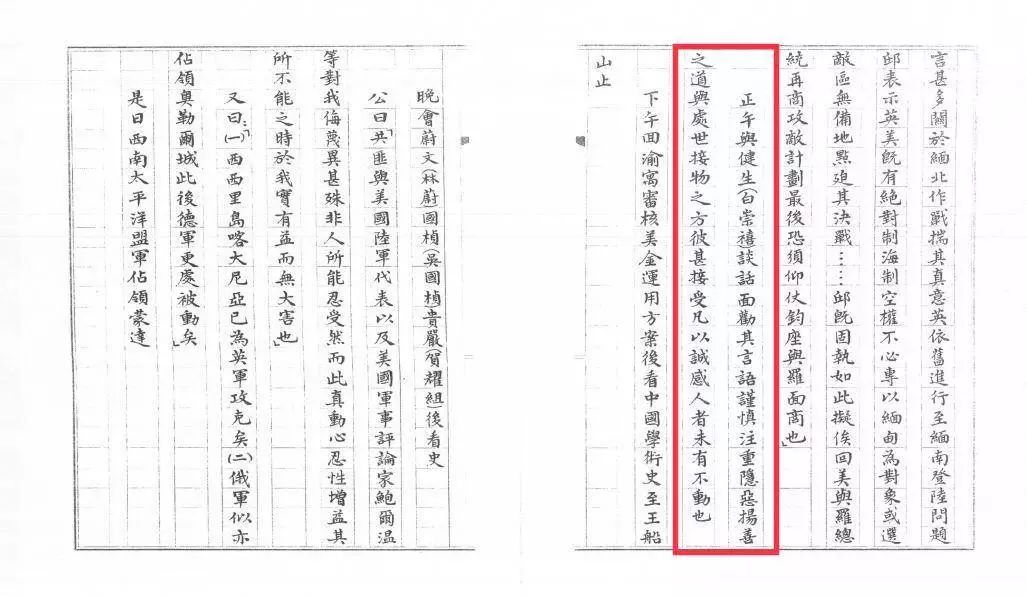 言甚多關於緬北作戰揣其真意英依舊進行至緬南登陸問題
邱表示英美既有絕對制海制空權不必專以緬甸為對象或選
敵區無備地點迫其決戰……邱既固執如此擬俟回美與羅總
統再商攻敵計劃最後恐須仰仗鈞座與羅面商也」
正午與健生(白崇禧)談話面勸其言語謹慎注重隱惡揚善
之道與處世接物之方彼甚接受凡以誠感人者未有不動也
下午回渝寓審核美金運用方案後看中國學術史至王船
山止
晚會蔚文(林蔚)國楨(吳國楨)貴嚴(賀耀組)後看史
公曰「共匪與美國陸軍代表以及美國軍事評論家鮑爾溫
等對我侮蔑異甚殊非人所能忍受然而此真動心忍性增益其
所不能之時於我實有益而無大害也」
又曰:「(一)西西里島喀大尼亞已為英軍攻克矣(二)俄軍似亦
佔領奧勒爾城此後德軍更處被動矣」
是日西南太平洋盟軍佔領蒙達